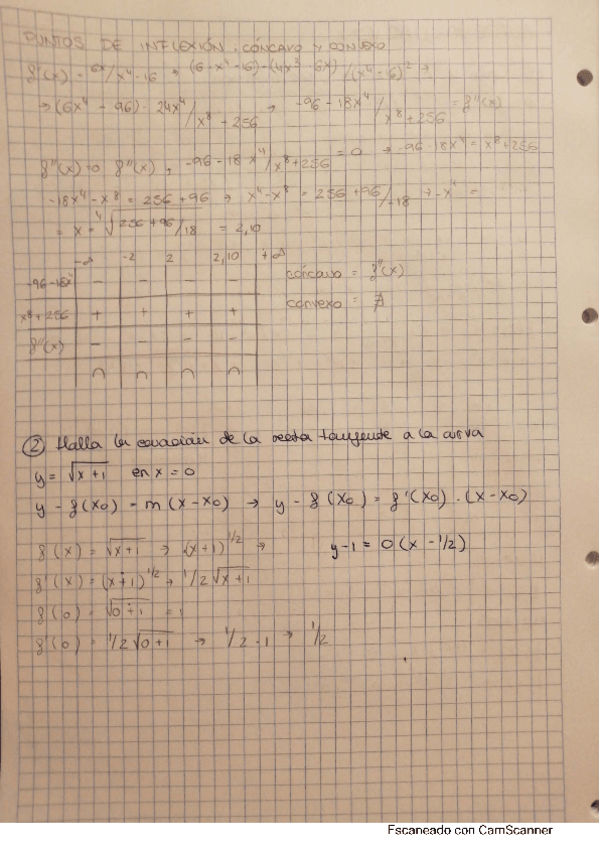 PUNTOS DE INFLEXIÓN, CÓNCAVO Y CONVEXO
f'(x) = 6x/x⁴-16 = (6 · x⁴ - 16) - (4x³ · 6x) / (x⁴ - 16)² →
→ (6x⁴ - 96) - 24x⁴ / x⁸ + 256 → -96 - 18x⁴ / x⁸ + 256 = f''(x)
f''(x) = 0 f''(x), -96 - 18x⁴ / x⁸ + 256 = 0 → -96 - 18x⁴ = x⁸ + 256
-18x⁴ - x⁸ = 256 + 96 → x⁴ - x⁸ = 256 + 96 / -18 → -x⁴ =
= x = ⁴√256 + 96 / 18 = 2,10
-∞ -2 2 2,10 +∞
-96-18x⁴ - - - -
x⁸+256 + + + +
f''(x) - - - -
∩ ∩ ∩ ∩
cóncavo = f''(x)
convexo = ∄
② Halla la ecuación de la recta tangente a la curva
y = √x+1 en x = 0
y - f(x0) = m (x - x0) → y - f(x0) = f'(x0) · (x - x0)
f(x) = √x+1 → (x+1)^1/2 →
y-1 = 0 (x - 1/2)
f'(x) = (x+1)^1/2 → 1/2√x+1
f(0) = √0+1 = 1
f'(0) = 1/2√0+1 → 1/2·1 → 1/2
Escaneado con CamScanner